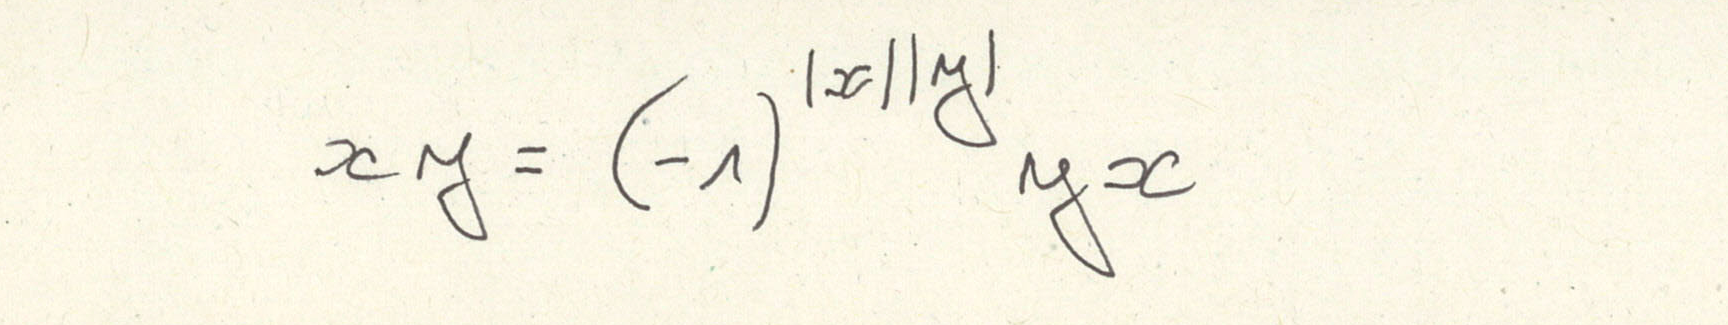 xy = (-1)^{|x||y|} yx